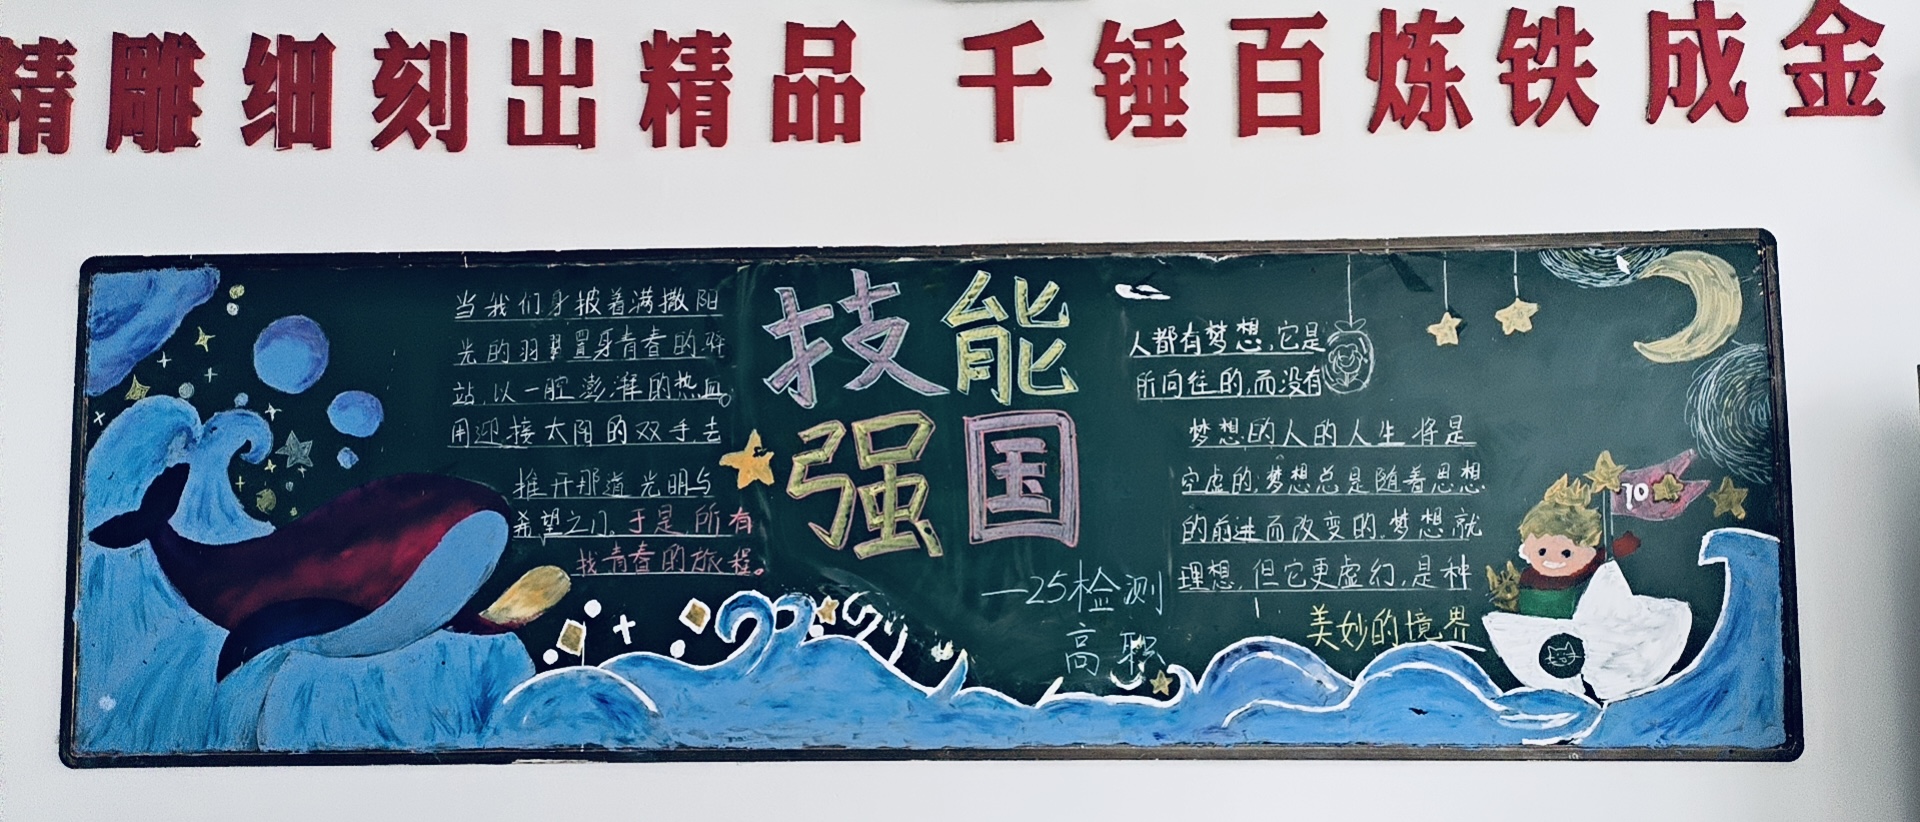 精雕细刻出精品 千锤百炼铁成金
当我们身披着满撒阳
光的羽翼置身青春的驿
站,以一腔澎湃的热血。
用迎接太阳的双手,去
推开那道光明与
希望之门。于是,所有
找青春的旅程。
技能
强国
—25检测
高职
人都有梦想,它是
所向往的,而没有
梦想的人的人生将是
空虚的,梦想总是随着思想
的前进而改变的,梦想就
理想,但它更虚幻,是种
美妙的境界
10